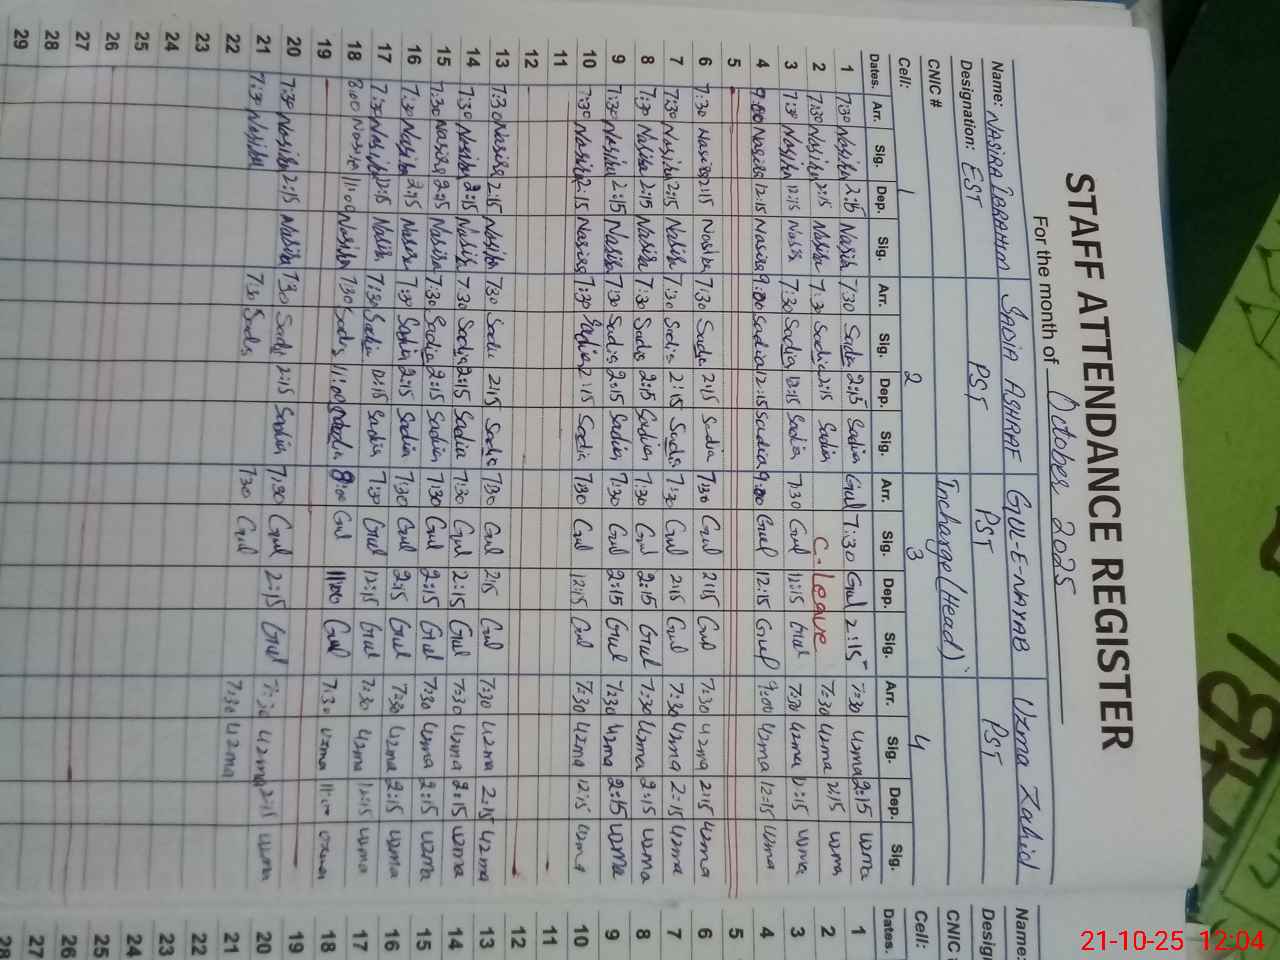 STAFF ATTENDANCE REGISTER
For the month of October 2025
Name: NASIRA IBRAHIM SADIA ASHRAF GUL-E-NAYAB Uzma Zahid
Designation: EST PST PST PST
CNIC # Incharge (Head)
Cell: 1 2 3 4
Dates. Arr. Sig. Dep. Sig. Arr. Sig. Dep. Sig. Arr. Sig. Dep. Sig. Arr. Sig. Dep. Sig.
1 7:30 Nasiba 2:15 Nasiba 7:30 Sadia 2:15 Sadia Gul 7:30 Gul 2:15 7:30 uzma 2:15 uzma
2 7:30 Nasiba 2:15 Nasiba 7:30 Sadia 2:15 Sadia C-leave 7:30 uzma 2:15 uzma
3 7:30 Nasiba 12:15 Nasiba 7:30 Sadia 12:15 Sadia 7:30 Gul 12:15 Gul 7:30 uzma 12:15 uzma
4 9:00 Nasiba 12:15 Nasiba 9:00 Sadia 12:15 Sadia 9:00 Gul 12:15 Gul 9:00 uzma 12:15 uzma
5
6 7:30 Nasiba 2:15 Nasiba 7:30 Sadia 2:15 Sadia 7:30 Gul 2:15 Gul 7:30 uzma 2:15 uzma
7 7:30 Nasiba 2:15 Nasiba 7:30 Sadia 2:15 Sadia 7:30 Gul 2:15 Gul 7:30 uzma 2:15 uzma
8 7:30 Nasiba 2:15 Nasiba 7:30 Sadia 2:15 Sadia 7:30 Gul 2:15 Gul 7:30 uzma 2:15 uzma
9 7:30 Nasiba 2:15 Nasiba 7:30 Sadia 2:15 Sadia 7:30 Gul 2:15 Gul 7:30 uzma 2:15 uzma
10 7:30 Nasiba 2:15 Nasiba 7:30 Sadia 2:15 Sadia 7:30 Gul 12:15 Gul 7:30 uzma 12:15 uzma
11
12
13 7:30 Nasiba 2:15 Nasiba 7:30 Sadia 2:15 Sadia 7:30 Gul 2:15 Gul 7:30 uzma 2:15 uzma
14 7:30 Nasiba 2:15 Nasiba 7:30 Sadia 2:15 Sadia 7:30 Gul 2:15 Gul 7:30 uzma 2:15 uzma
15 7:30 Nasiba 2:15 Nasiba 7:30 Sadia 2:15 Sadia 7:30 Gul 2:15 Gul 7:30 uzma 2:15 uzma
16 7:30 Nasiba 2:15 Nasiba 7:30 Sadia 2:15 Sadia 7:30 Gul 2:15 Gul 7:30 uzma 2:15 uzma
17 7:30 Nasiba 12:15 Nasiba 7:30 Sadia 12:15 Sadia 7:30 Gul 12:15 Gul 7:30 uzma 12:15 uzma
18 8:00 Nasiba 11:00 Nasiba 7:30 Sadia 11:00 Sadia 8:00 Gul 11:00 Gul 7:30 uzma 11:00 uzma
19
20 7:30 Nasiba 2:15 Nasiba 7:30 Sadia 2:15 Sadia 7:30 Gul 2:15 Gul 7:30 uzma 2:15 uzma
21 7:30 Nasiba 7:30 Sadia 7:30 Gul 7:30 uzma
22
23
24
25
26
27
28
29
Name:
CNIC
Cell:
Dates.
1
2
3
4
5
6
7
8
9
10
11
12
13
14
15
16
17
18
19
20
21
22
23
24
25
26
27
28
21-10-25 12:04